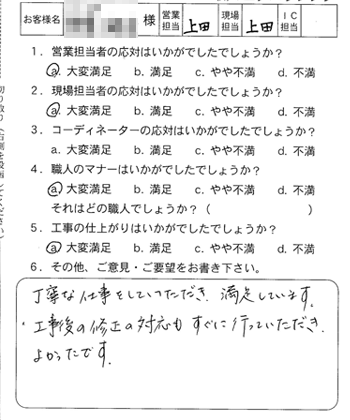 お客様名 様 営業担当 上田 現場担当 上田 IC担当
1．営業担当者の応対はいかがでしたでしょうか？
a. 大変満足 b. 満足 c. やや不満 d. 不満
2．現場担当者の応対はいかがでしたでしょうか？
a. 大変満足 b. 満足 c. やや不満 d. 不満
3．コーディネーターの応対はいかがでしたでしょうか？
a. 大変満足 b. 満足 c. やや不満 d. 不満
4．職人のマナーはいかがでしたでしょうか？
a. 大変満足 b. 満足 c. やや不満 d. 不満
それはどの職人でしょうか？（ ）
5．工事の仕上がりはいかがでしたでしょうか？
a. 大変満足 b. 満足 c. やや不満 d. 不満
6．その他、ご意見・ご要望をお書き下さい。
丁寧な仕事をしていただき、満足しています。
工事後の修正の対応もすぐに行っていただき、
よかったです。